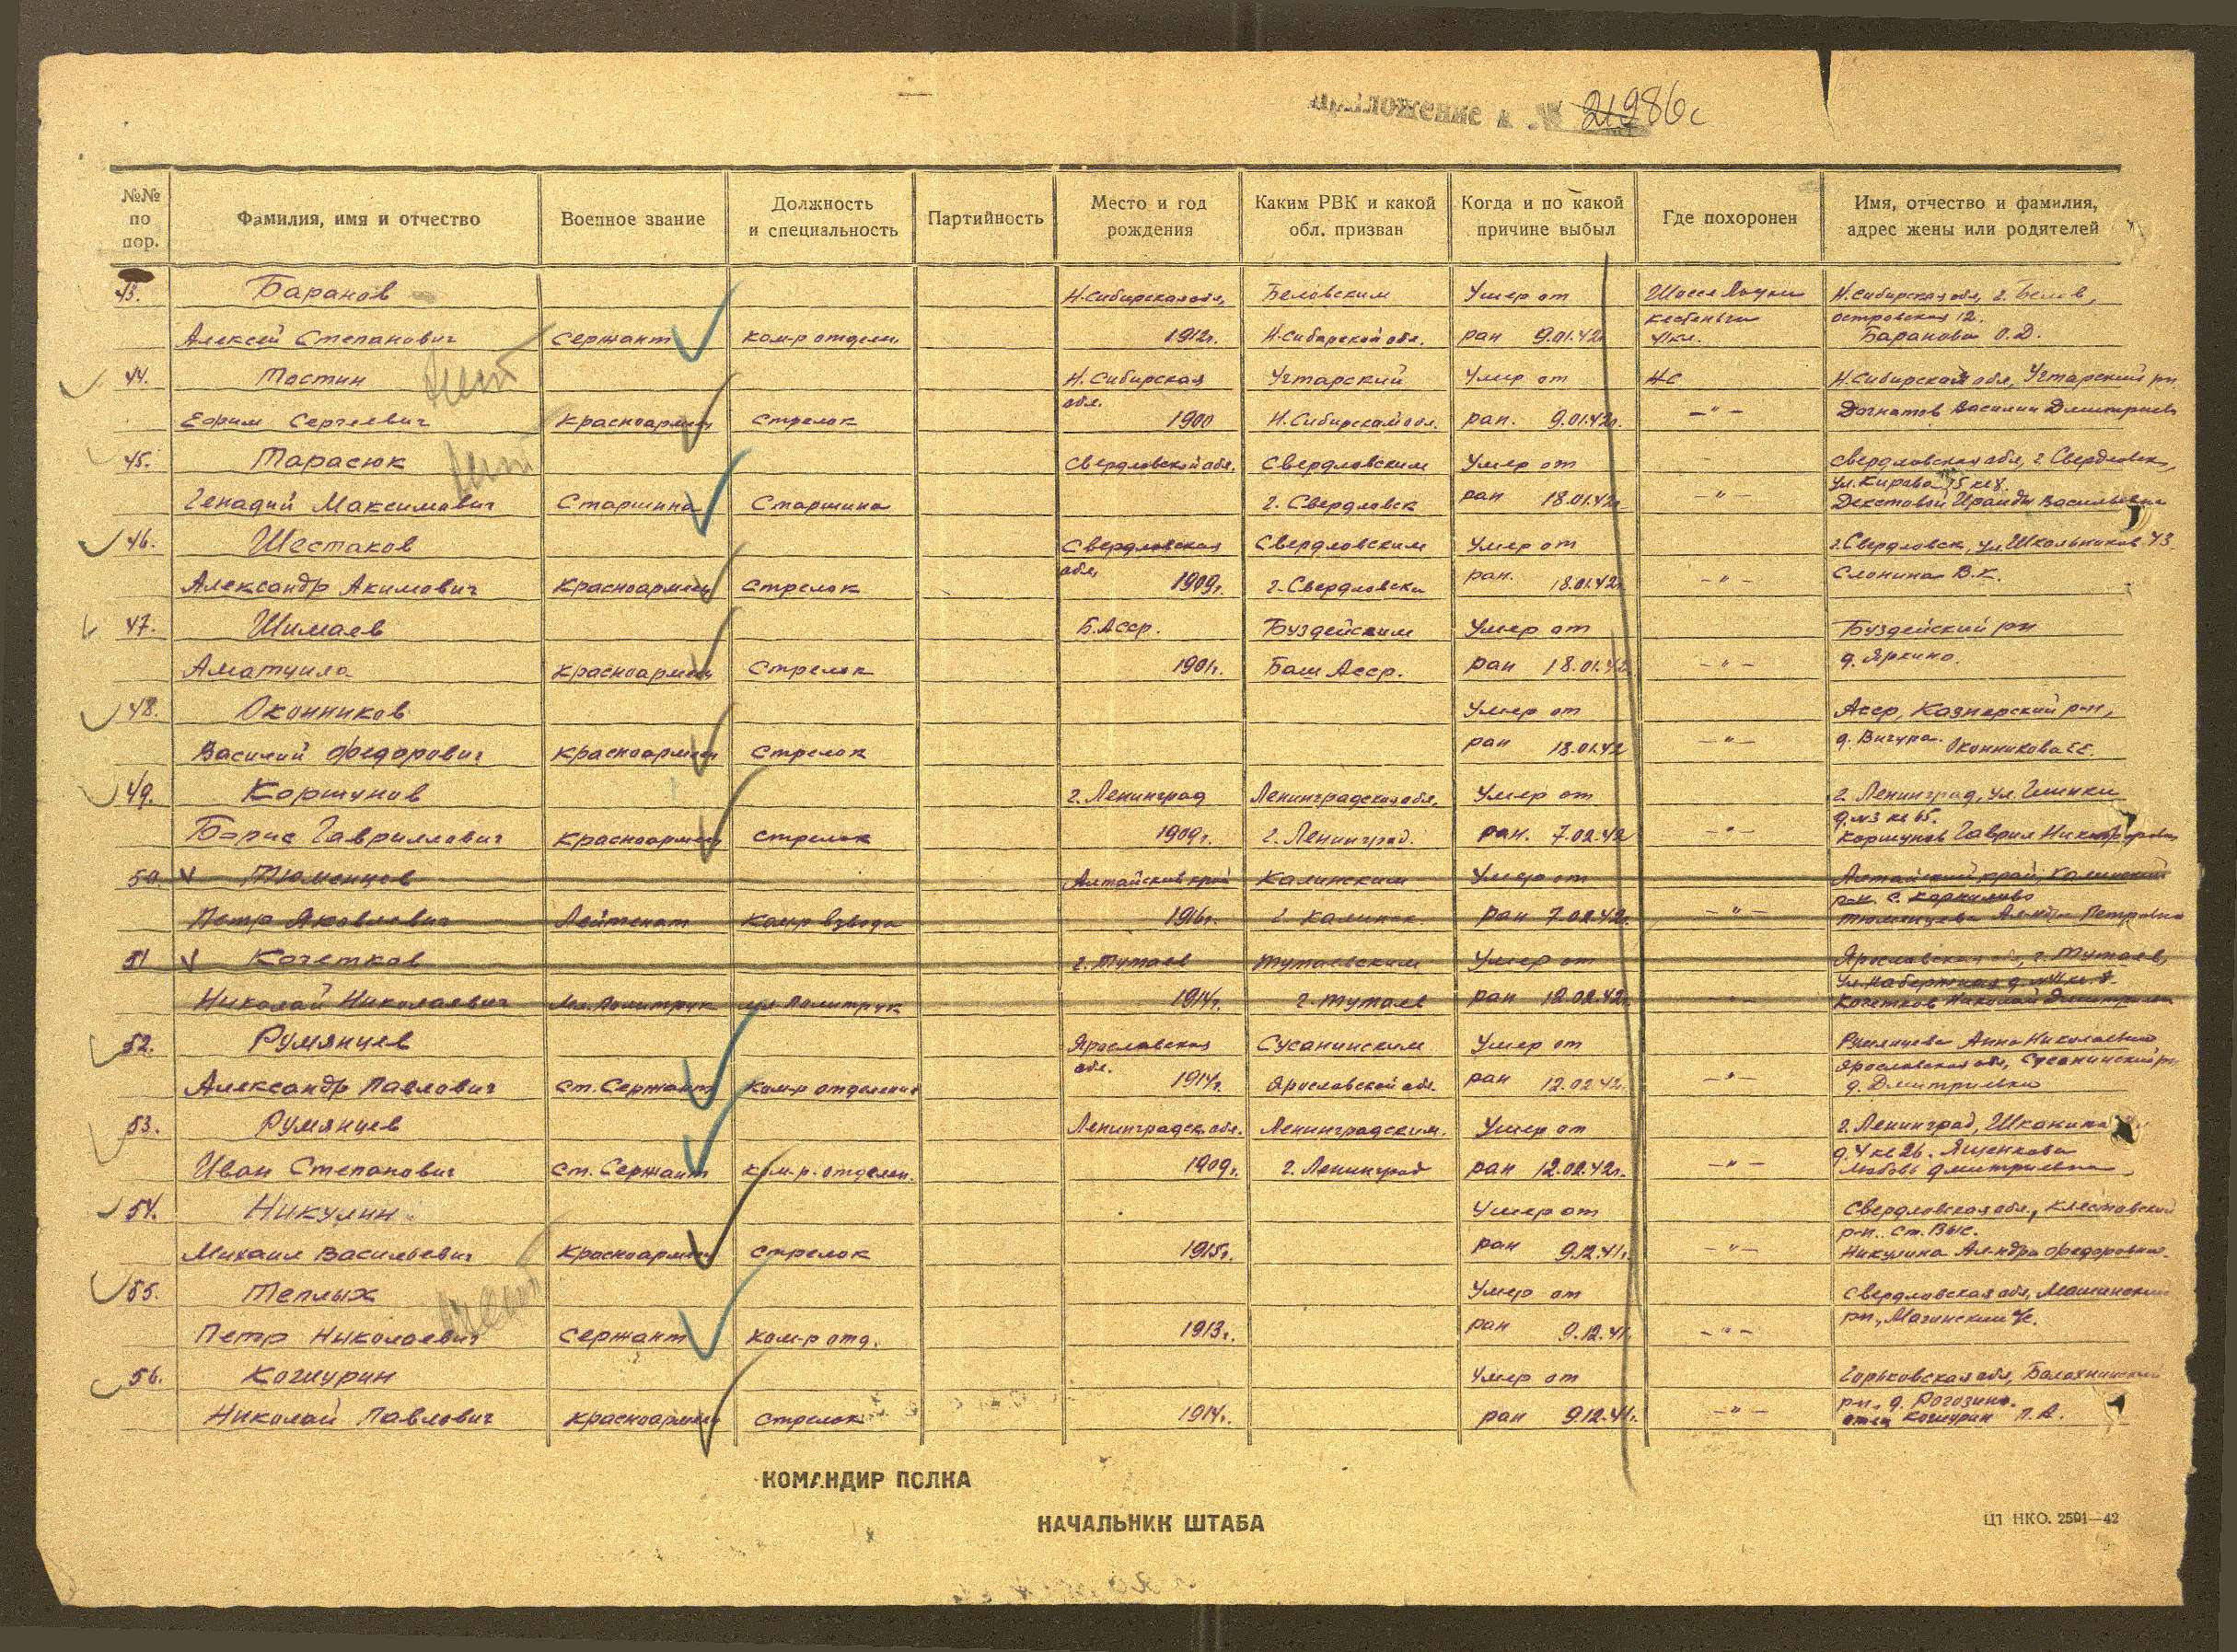 Приложение к № 21986с
№№ по пор.
Фамилия, имя и отчество
Военное звание
Должность и специальность
Партийность
Место и год рождения
Каким РВК и какой обл. призван
Когда и по какой причине выбыл
Где похоронен
Имя, отчество и фамилия, адрес жены или родителей
43. Баранов Н.Сибирская обл, Беловским Умер от Шоссе Лоухи Н.Сибирская обл, г. Белов,
Кестеньга Островская 12.
Алексей Степанович Сержант ком-р отделен 1912г. Н.Сибирской обл. ран 9.01.42г. Баранова О.Д.
44. Тостин Н.Сибирская Умер от Н.Сибирская обл,
обл.
Ефим Сергеевич Красноармеец Стрелок 1900 Н.Сибирской обл. ран. 9.01.42г. —"— Василий Дмитриев
45. Тарасюк Свердловской обл. Свердловским Умер от Свердловская обл, г. Свердловск,
ул. Кирова
Генадий Максимович Старшина Старшина г. Свердловск ран 18.01.42г. —"— Васильевна
46. Шестаков Свердловская Свердловским Умер от г.Свердловск, ул.Школьников 43.
обл,
Александр Акимович Красноармеец Стрелок 1909г. г.Свердловска ран. 18.01.42г. —"— Слонина В.К.
47. Шимаев Б.Асср. Буздейским Умер от Буздейский рн
Аматуила Красноармеец Стрелок 1901г. Баш Асср. ран 18.01.42 —"— д. Яркино.
48. Оконников Умер от Асср, р-н,
Василий Федорович Красноармеец Стрелок ран 18.01.42 —"— д. Вичура. Оконникова Е.Е.
49. Коршунов г. Ленинград Ленинградская обл. Умер от г. Ленинград, ул. Глинки
д.№3 кв 65.
Борис Гаврилович Красноармеец стрелок 1909г. г. Ленинград. ран. 7.02.42 —"— Коршунов Гаврил Никифорович
50. V Тюменцев Алтайский край Калинским Умер от Алтайский край,
Петр Яковлевич Лейтенант Ком-р взвода 1916г. г Калинск ран 7.02.42г. —"— Тюменцева Петровна
51 V Кочетков г. Тутаев Тутаевским Умер от Ярославская обл, г. Тутаев,
ул. Набережная
Николай Николаевич Мл. Политрук мл Политрук 1914г. г Тутаев ран 12.02.42г. —"— Кочетков Николай Дмитриевич
52. Румянцев Ярославская Сусанинским Умер от Румянцева Анна Николаевна
обл. Ярославская обл, Сусанинский рн
Александр Павлович Ст. Сержант Ком-р отделения 1914г. Ярославской обл. ран 12.02.42г. —"— д. Дмитриевка
53. Румянцев Ленинградск. обл. Ленинградским. Умер от г. Ленинград,
д. 4 кв 26. Яценкова
Иван Степанович Ст. Сержант ком-р. отделен. 1909г. г. Ленинград ран 12.02.42г. —"— Любовь Дмитриевна
54. Никулин Умер от Свердловская обл,
р-н. ст. Выс.
Михаил Васильевич Красноармеец Стрелок 1915г. ран 9.12.41г. —"— Никулина Ал-ндра Федоровна.
55. Теплых Умер от Свердловская обл,
Петр Николаевич Сержант ком-р отд. 1913г. ран 9.12.41. —"—
56. Кошурин Умер от Горьковская обл, Балахнинский
р-н. д. Рогозино.
Николай Павлович Красноармеец Стрелок 1914г. ран 9.12.41г. —"— отец Кошурин П.А.
нет
нет
нет
КОМАНДИР ПОЛКА
НАЧАЛЬНИК ШТАБА
ЦТ НКО. 2591—42